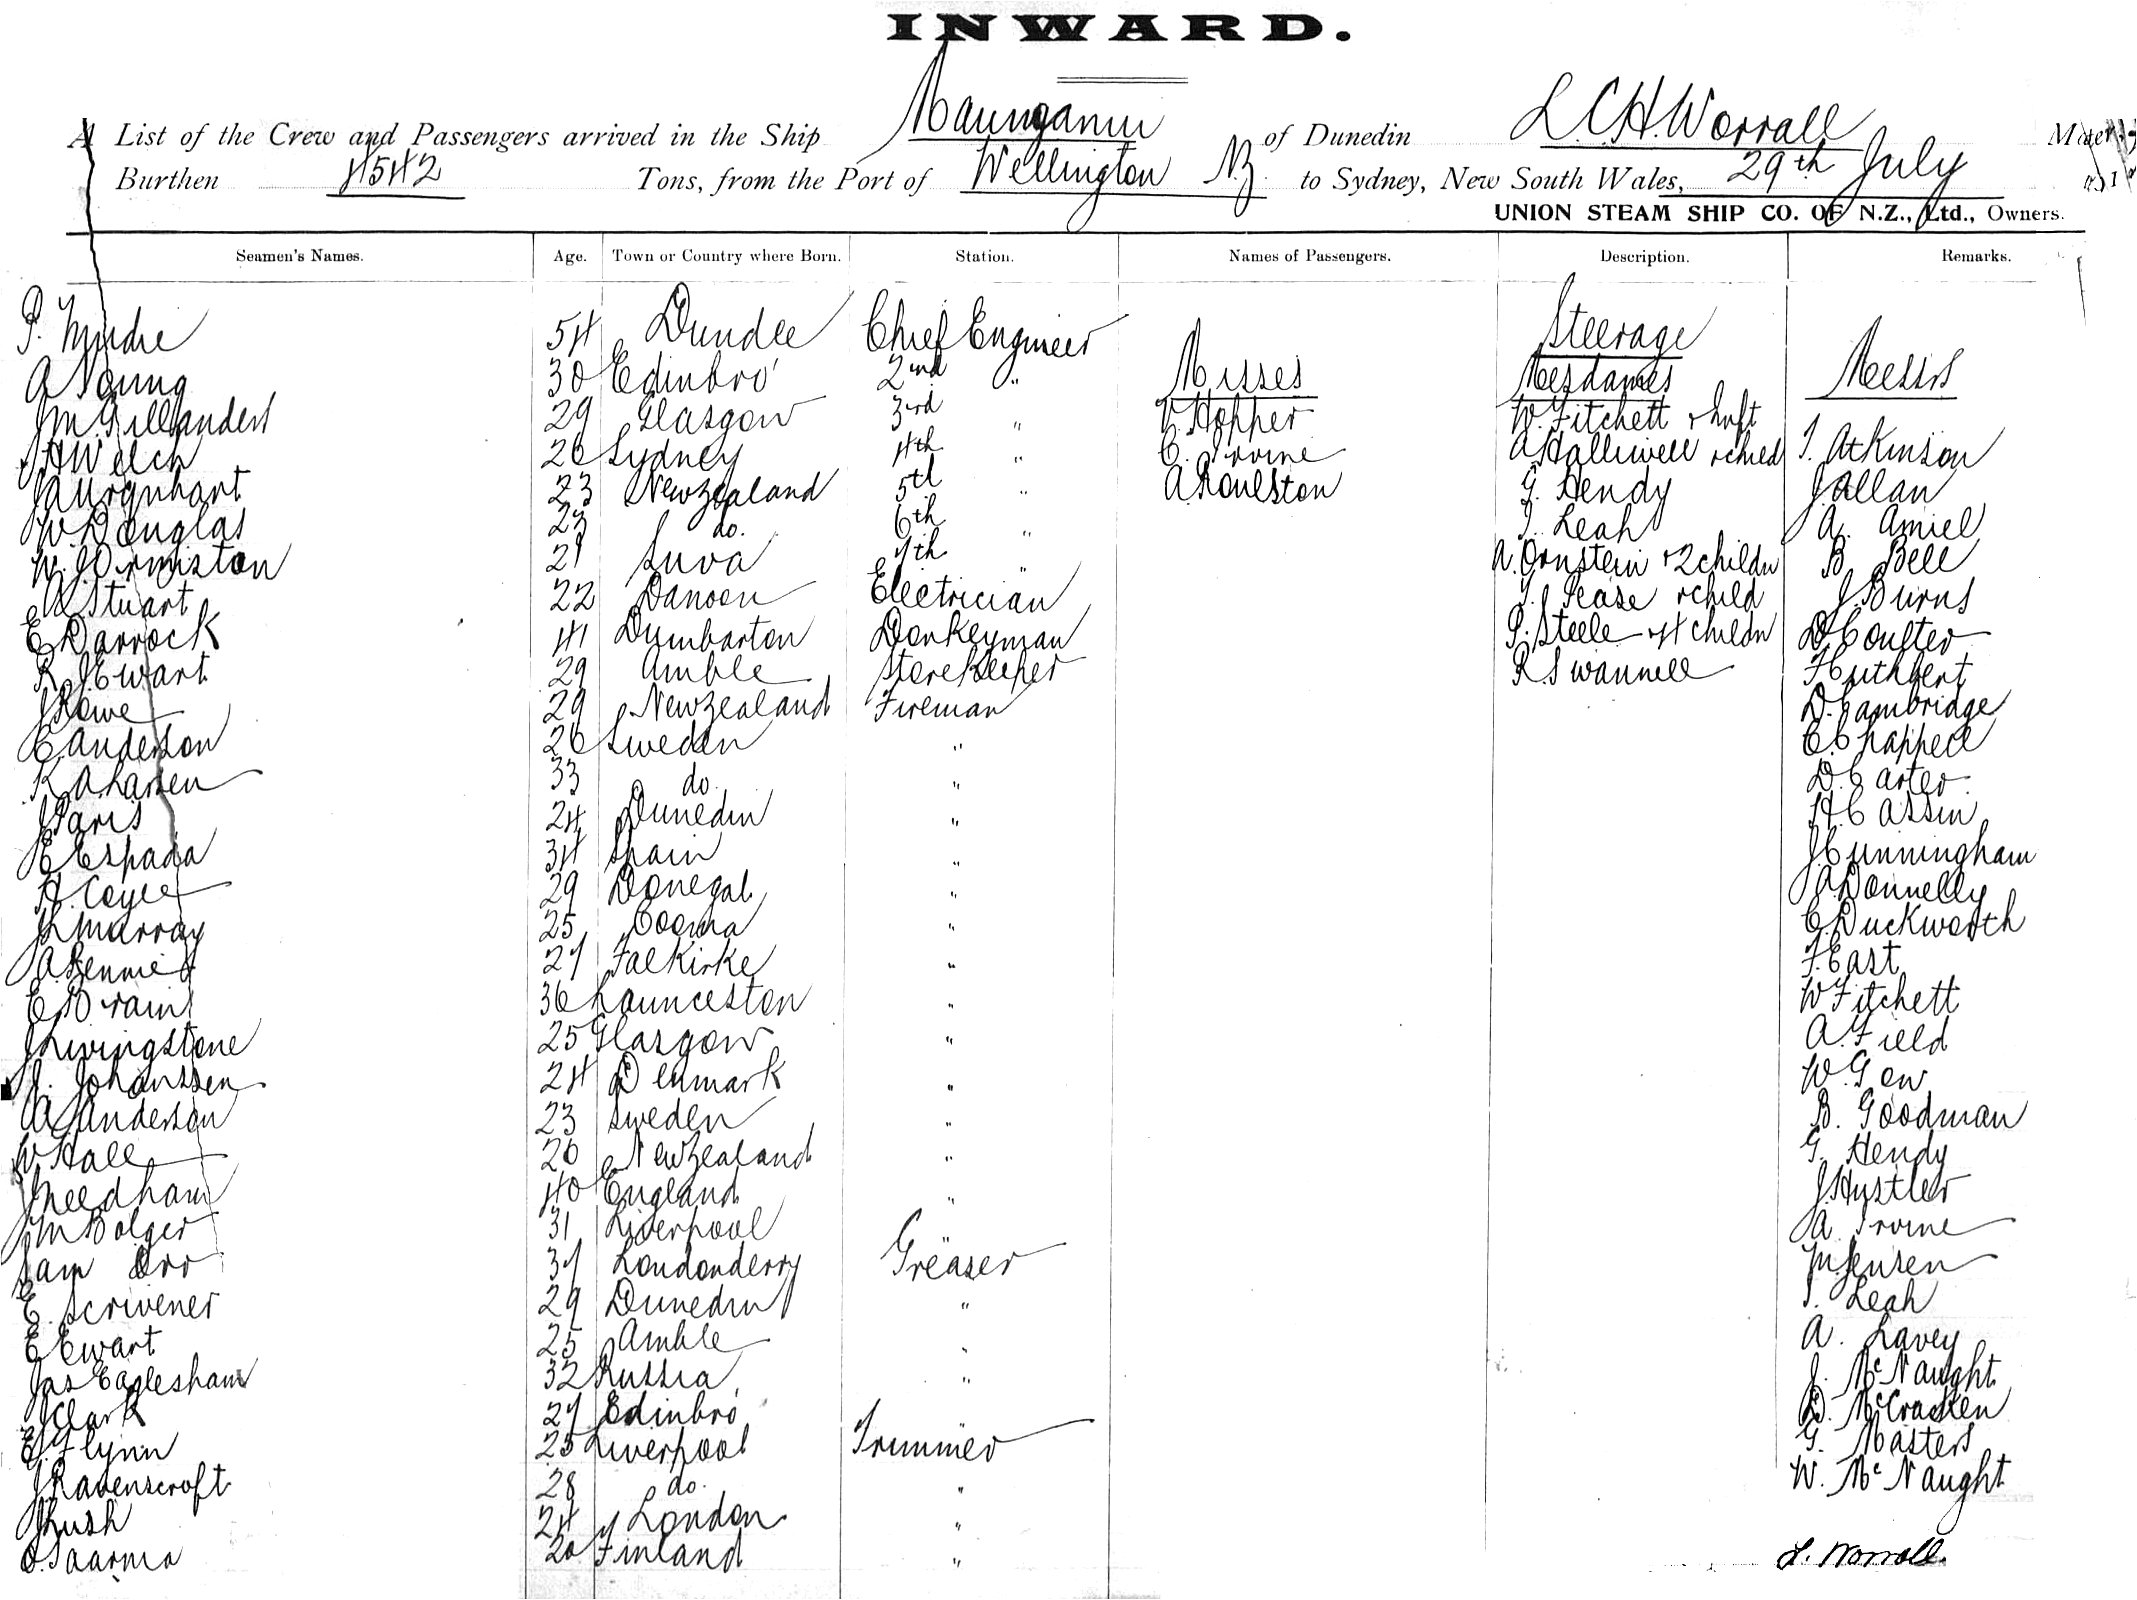 INWARD.
A List of the Crew and Passengers arrived in the Ship Maunganui of Dunedin L. C. H. Worrall
Burthen 4542 Tons, from the Port of Wellington N.Z. to Sydney, New South Wales, 29th July
UNION STEAM SHIP CO. OF N.Z., Ltd., Owners.
Seamen's Names. Age. Town or Country where Born. Station. Names of Passengers. Description. Remarks.
P. 54 Dundee Chief Engineer Steerage
A Young 30 Edinbro' 2nd " Misses Mesdames Messrs
J M Gillanders 29 Glasgow 3rd " V. Hopper W. Fitchett & Inft
H Welch 26 Sydney 4th " C. Irvine A Halliwell & child T. Atkinson
J A Urquhart 23 New Zealand 5th " A Roulston G. Hendy J Allan
W. Douglas 23 do. 6th " T. Leah A. Amiel
W. J Ormiston 21 Suva 7th " A. Ornstein & 2 childn B Bell
A Stuart 22 Dunoon Electrician T. Pease & child J Burns
E Darrock 41 Dumbarton Donkeyman P. Steele & 4 childn D Coulter
R. J Ewart 29 Amble Storekeeper R Swannell F Cuthbert
J Rowe 29 New Zealand Fireman D. Cambridge
C Anderson 26 Sweden " C. Chappell
K A Larsen 33 do. " D. Carter
J Paris 24 Dunedin " H C Assin
E Espada 34 Spain " J Cunningham
H. Coyle 29 Donegal " J A Donnelly
J L Murray 25 Cooma " C. Duckworth
A Rennie 27 Falkirke " F. East
E Brain 36 Launceston " W Fitchett
J Livingstone 25 Glasgow " A. Field
J. Johanssen 24 Denmark " W. Gow
A Anderson 23 Sweden " B. Goodman
W Hall 26 New Zealand " G. Hendy
J Needham 40 England " J. Hustler
J M Bolger 31 Liverpool " A Irvine
Sam Orr 37 Londonderry Greaser M. Jensen
E. Scrivener 29 Dunedin " T. Leah
E Ewart 25 Amble " A. Lavey
Jas Eaglesham 32 Russia " J. McNaught
J Clark 27 Edinbro " D. McCracken
E. Flynn 25 Liverpool Trimmer G. Masters
J Ravenscroft 28 do. " W. McNaught
J Rush 24 London "
O. Saarma 20 Finland " L. Worrall.